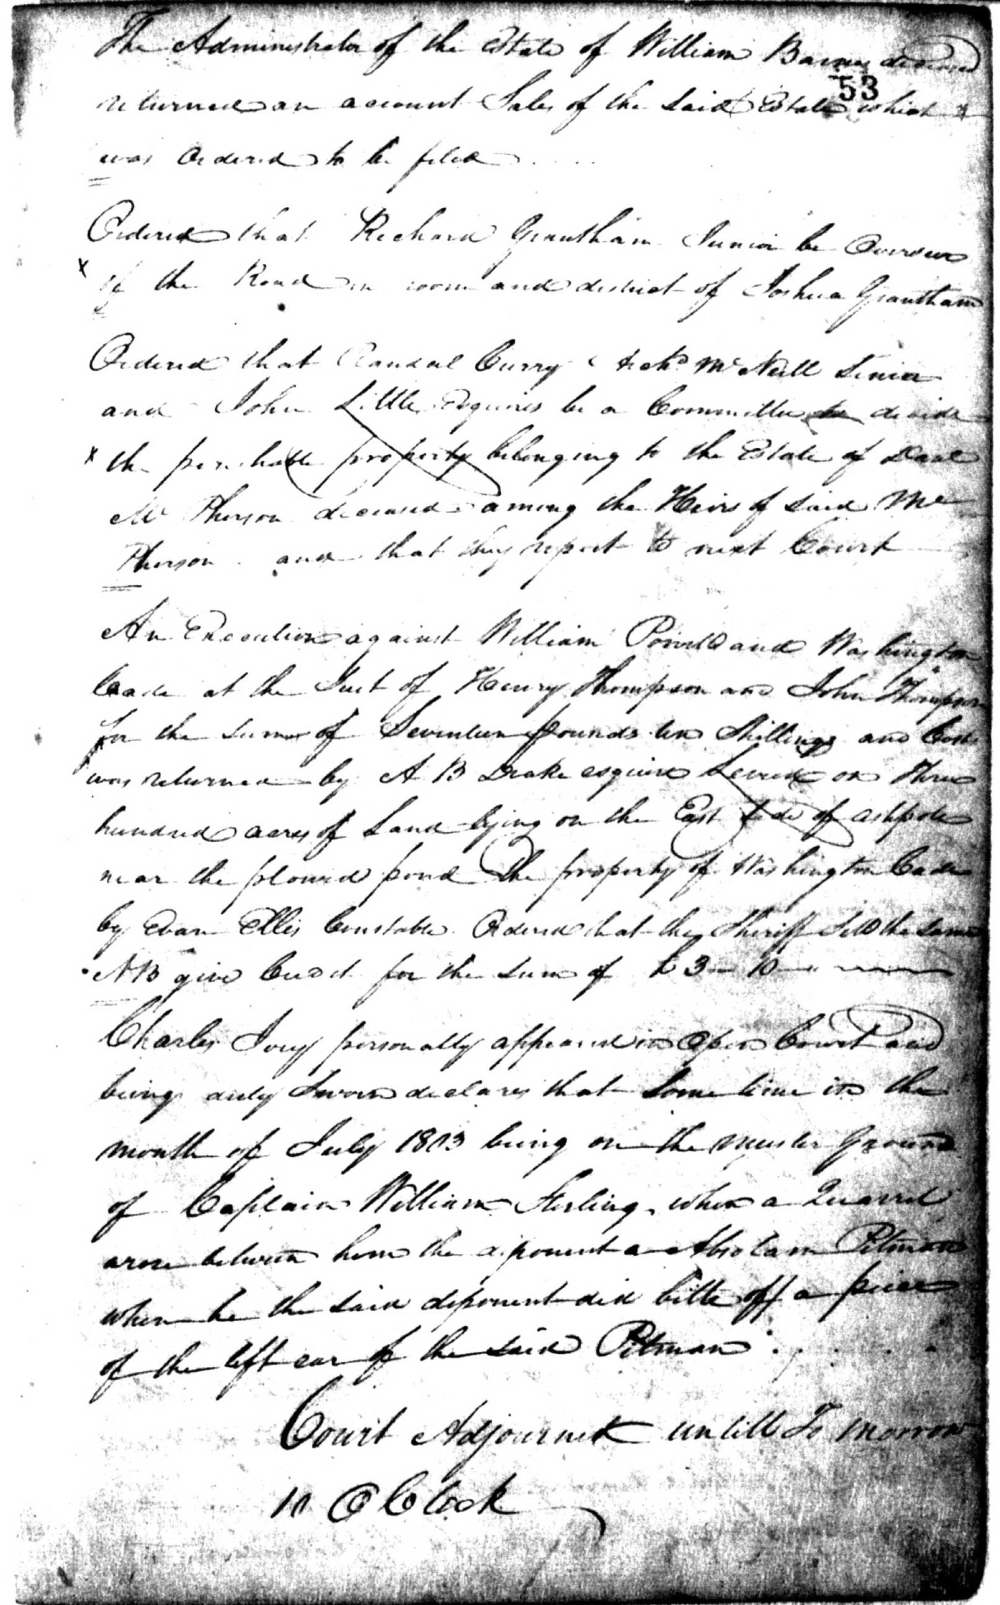 The Administrator of the Estate of William Barnes deceased
53
returned an account Sales of the said Estate which
was Ordered to be filed
Ordered that Richard Grantham Junior be Overseer
x of the Road in room and district of Joshua Grantham
Ordered that Randal Curry & Archd McNeill Senior
and John Little Esquires be a Committee to devide
x the perishable property belonging to the Estate of
Mc Pherson deceased among the Heirs of said Mc
Pherson and that they report to next Court
An Execution against William Powell and Washington
Cade at the Suit of Henry Thompson and John Thompson
for the sum of Seventeen pounds ten Shillings and Cost
was returned by A B Drake esquire Levied on three
hundred acres of Land lying on the East Side of ashpole
near the plowed pond the property of Washington Cade
by Evan Ellis Constable Ordered that the Sheriff Sell the same
NB give Credit for the sum of £ 3 - 10 -
Charles Ivey personally appeared in Open Court and
being duly Sworn declares that some time in the
month of July 1803 being on the muster Ground
of Captain William Sterling when a Quarrel
arose between him the deponent a Absolam Pitman
when he the said deponent did bitte off a piece
of the left ear of the said Pitman
Court Adjourned untill To morrow
10 OClock